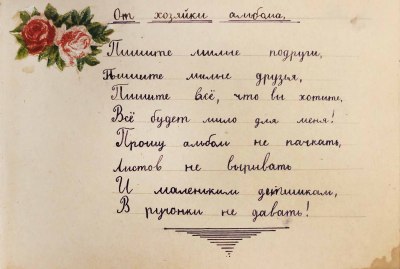 От хозяйки альбома.
Пишите милые подруги,
Пишите милые друзья,
Пишите всё, что вы хотите,
Всё будет мило для меня!
Прошу альбом не пачкать,
Листов не вырывать
И маленьким детишкам,
В ручонки не давать!